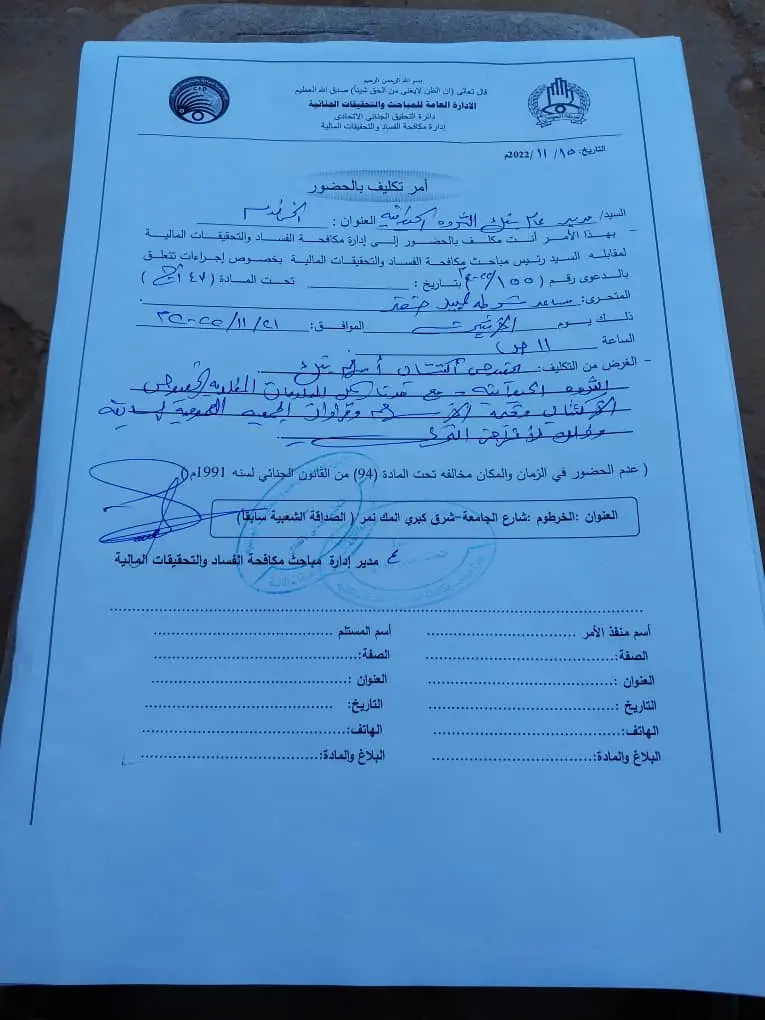 بسم الله الرحمن الرحيم
قال تعالى (ان الظن لايغني من الحق شيئاً) صدق الله العظيم
الادارة العامة للمباحث والتحقيقات الجنائية
دائرة التحقيق الجنائي الاتحادى
إدارة مكافحة الفساد والتحقيقات المالية
C.I.D
التاريخ: ١٥/ ١١ /2022م
أمر تكليف بالحضور
السيد/ مدير عام بنك الثروة الحيوانية العنوان : الخرطوم
- بهذا الأمر أنت مكلف بالحضور إلى إدارة مكافحة الفساد والتحقيقات المالية
لمقابله السيد رئيس مباحث مكافحة الفساد والتحقيقات المالية بخصوص إجراءات تتعلق
بالدعوى رقم ( ١٥٥/٢٠٢٢م) بتاريخ : تحت المادة ( ٤٧ أ ج )
المتحرى: مساعد شرطه
ذلك يوم الموافق: ٢١/ ١١/ ٢٠٢٢م
الساعة ١١ ص
- الغرض من التكليف: بخصوص أكتتاب أسهم بنك
الثروه الحيوانيه - مع
وقرارات الجمعيه العمومية
وذلك
( عدم الحضور في الزمان والمكان مخالفه تحت المادة (94) من القانون الجنائي لسنه 1991م)
العنوان :الخرطوم :شارع الجامعة-شرق كبري الملك نمر ( الصداقة الشعبية سابقاً)
ع/ مدير إدارة مباحث مكافحة الفساد والتحقيقات المالية
أسم منفذ الأمر ........................ أسم المستلم ........................
الصفة:........................ الصفة:........................
العنوان :........................ العنوان :........................
التاريخ :........................ التاريخ: ........................
الهاتف:........................ الهاتف:........................
البلاغ والمادة:........................ البلاغ والمادة:........................